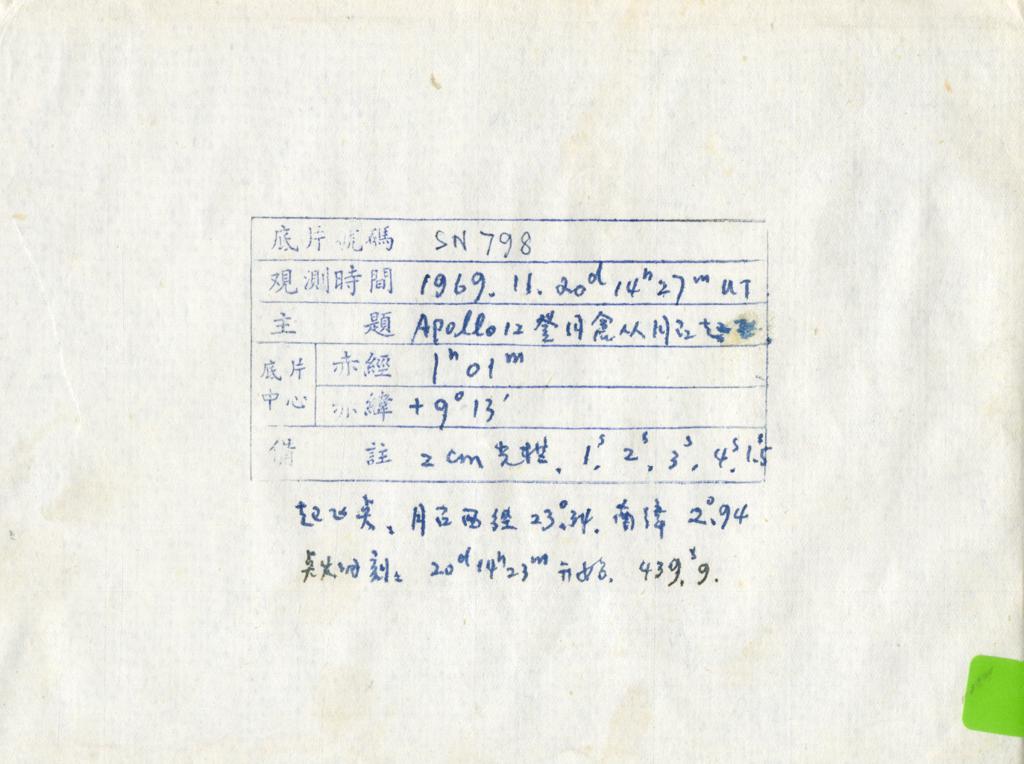 底片號碼 SN 798
观測時間 1969. 11. 20ᵈ 14ʰ 27ᵐ UT
主題 Apollo 12 登月艙从月面起
底片中心 赤經 1ʰ 01ᵐ
赤緯 +9° 13′
備註 2 cm 光栏, 1ˢ, 2ˢ, 3ˢ, 4ˢ, 1.5ˢ
起飞点: 月面西經 23°.34, 南緯 2°.94
点火时刻: 20ᵈ 14ʰ 23ᵐ 开始, 439.ˢ9.